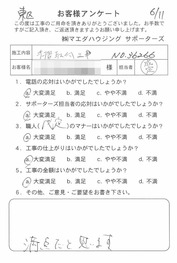 東区
お客様アンケート
6/11
この度は工事のご発注を頂きありがとうございました。お手数ですがご記入頂き、ご返送頂きますようお願い申し上げます。
㈱マエダハウジング サポーターズ
施工内容
工事
NO.36266
お名前
様
担当者
1. 電話の応対はいかがでしたでしょうか?
a. 大変満足 b. 満足 c. やや不満 d. 不満
2. サポーターズ担当者の応対はいかがでしたでしょうか?
a. 大変満足 b. 満足 c. やや不満 d. 不満
3. 職人( )のマナーはいかがでしたでしょうか?
a. 大変満足 b. 満足 c. やや不満 d. 不満
4. 工事の仕上がりはいかがでしたでしょうか?
a. 大変満足 b. 満足 c. やや不満 d. 不満
5. 工事の金額はいかがでしたでしょうか?
a. 大変満足 b. 満足 c. やや不満 d. 不満
6. その他、ご意見・ご要望をお書き下さい。
満点だと思います